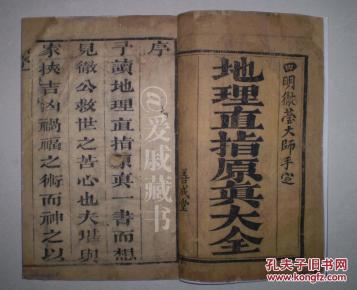 四明徹瑩大師手定
地理直指原真大全
善成堂
序
予讀地理直指原真一書而想
見徹公救世之苦心也夫堪輿
家挾吉凶禍福之術而神之以
爱戚藏书
孔夫子旧书网